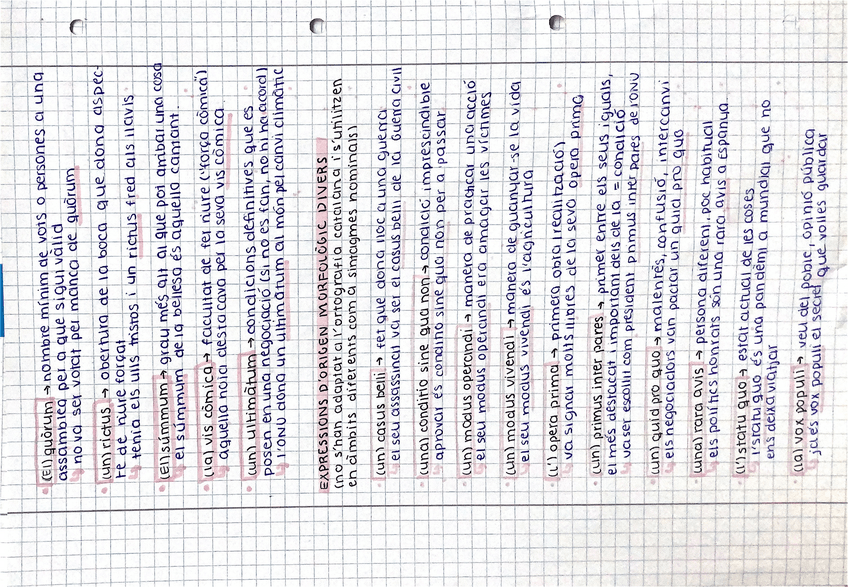 (El) quòrum → nombre mínim de vots o persones a una
assamblea per a que sigui vàlid
no va ser votat per manca de quòrum
(un) rictus → obertura de la boca que dona aspec-
te de riure forçat
tenia els ulls tristos i un rictus fred als llavis
(El) súmmum → grau més alt al que pot arribar una cosa
el súmmum de la bellesa és aquella cantant.
(la) vis còmica → facultat de fer riure ("força còmica")
aquella noia destacava per la seva vis còmica
(un) ultimàtum → condicions definitives que es
posen en una negociació (si no es fan, no hi ha acord)
l'ONU dona un ultimàtum al món pel canvi climàtic
EXPRESSIONS D'ORIGEN MORFOLÒGIC DIVERS
(no s'han adaptat a l'ortografia catalana i s'utilitzen
en àmbits diferents com a sintagmes nominals)
(un) casus belli → fet que dona lloc a una guerra
el seu assassinat va ser el casus belli de la Guerra Civil
(una) conditio sine qua non → condició imprescindible
aprovar és conditio sine qua non per a passar
(un) modus operandi → manera de practicar una acció
el seu modus operandi era amagar les víctimes
(un) modus vivendi → manera de guanyar-se la vida
el seu modus vivendi és l'agricultura
(l') opera prima → primera obra (realització)
va signar molts llibres de la seva opera prima
(un) primus inter pares → primer entre els seus iguals,
el més destacat i important dels de la = condició
va ser escollit com president primus inter pares de l'ONU
(un) quid pro quo → malentès, confusió, intercanvi
els negociadors van pactar un quid pro quo
(una) rara avis → persona diferent, poc habitual
els polítics honrats són una rara avis a Espanya.
(l') statu quo → estat actual de les coses
l'statu quo és una pandèmia mundial que no
ens deixa viatjar
(la) vox populi → veu del poble, opinió pública
ja és vox populi el secret que volies guardar